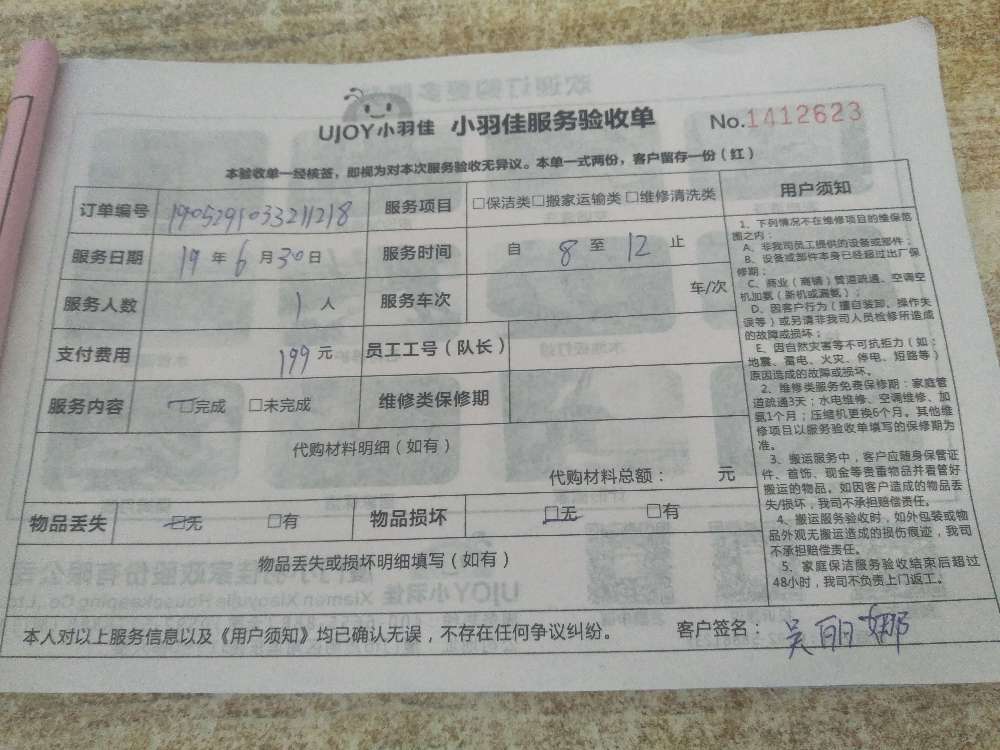 UJOY小羽佳 小羽佳服务验收单 No.1412623
本验收单一经核签，即视为对本次服务验收无异议。本单一式两份，客户留存一份（红）
订单编号 1905291033211218 服务项目 □保洁类□搬家运输类□维修清洗类
服务日期 19 年 6 月 30 日 服务时间 自 8 至 12 止
服务人数 1 人 服务车次 车/次
支付费用 199 元 员工工号（队长）
服务内容 □完成 □未完成 维修类保修期
代购材料明细（如有）
代购材料总额： 元
物品丢失 □无 □有 物品损坏 □无 □有
物品丢失或损坏明细填写（如有）
用户须知
1、下列情况不在维修项目的维保范
围之内：
A、非我司员工提供的设备或部件；
B、设备或部件本身已经超过出厂保
修期；
C、商业（商铺）管道疏通、空调空
机加氨（新机或漏氨）；
D、因客户行为（擅自装卸、操作失
误等）或另请非我司人员检修所造成
的故障或损坏；
E、因自然灾害等不可抗拒力（如：
地震、雷电、火灾、停电、短路等）
原因造成的故障或损坏。
2、维修类服务免费保修期：家庭管
道疏通3天；水电维修、空调维修、加
氨1个月；压缩机更换6个月。其他维
修项目以服务验收单填写的保修期为
准。
3、搬运服务中，客户应随身保管证
件、首饰、现金等贵重物品并看管好
搬运的物品。如因客户造成的物品丢
失/损坏，我司不承担赔偿责任。
4、搬运服务验收时，如外包装或物
品外观无搬运造成的损伤痕迹，我司
不承担赔偿责任。
5、家庭保洁服务验收结束后超过
48小时，我司不负责上门返工。
本人对以上服务信息以及《用户须知》均已确认无误，不存在任何争议纠纷。 客户签名： 吴丽娜